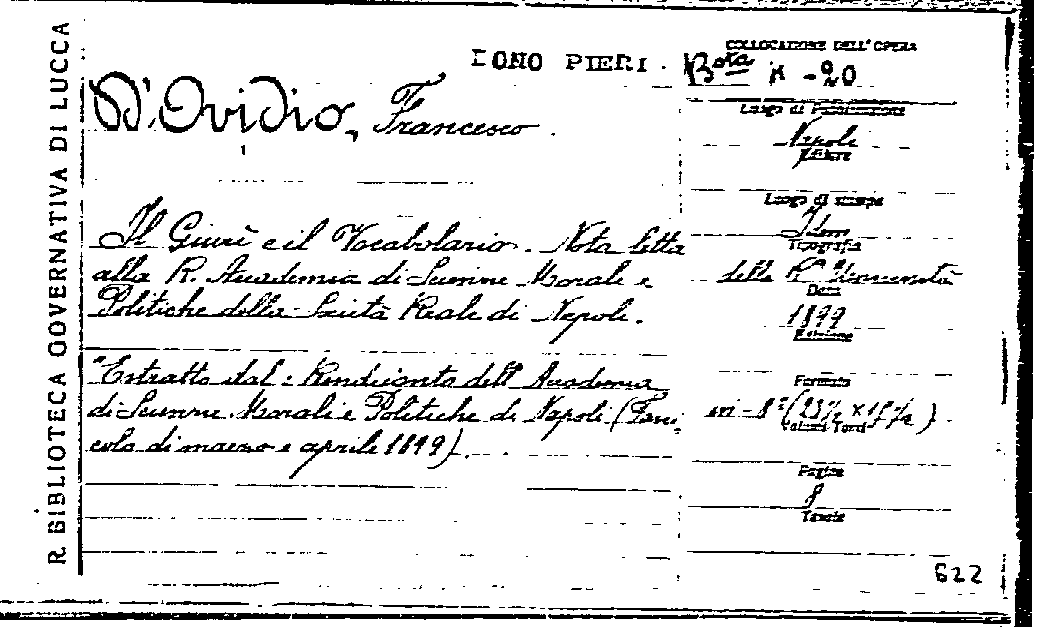 R. BIBLIOTECA GOVERNATIVA DI LUCCA
DONO PIERI.
COLLOCAZIONE DELL'OPERA
B.sta K - 20
D'Ovidio, Francesco.
Luogo di Pubblicazione
Napoli
Editore
Luogo di stampa
Idem
Tipografia
della R. Università
Data
1899
Edizione
Formato
in-8° (23½ × 15½).
Volumi Tomi
Pagine
8
Tavole
Il Giurì e il Vocabolario. Nota letta
alla R. Accademia di Scienze Morali e
Politiche della Società Reale di Napoli.
"Estratto dal: Rendiconto dell'Accademia
di Scienze Morali e Politiche di Napoli (Fasci-
colo di marzo e aprile 1899).
622